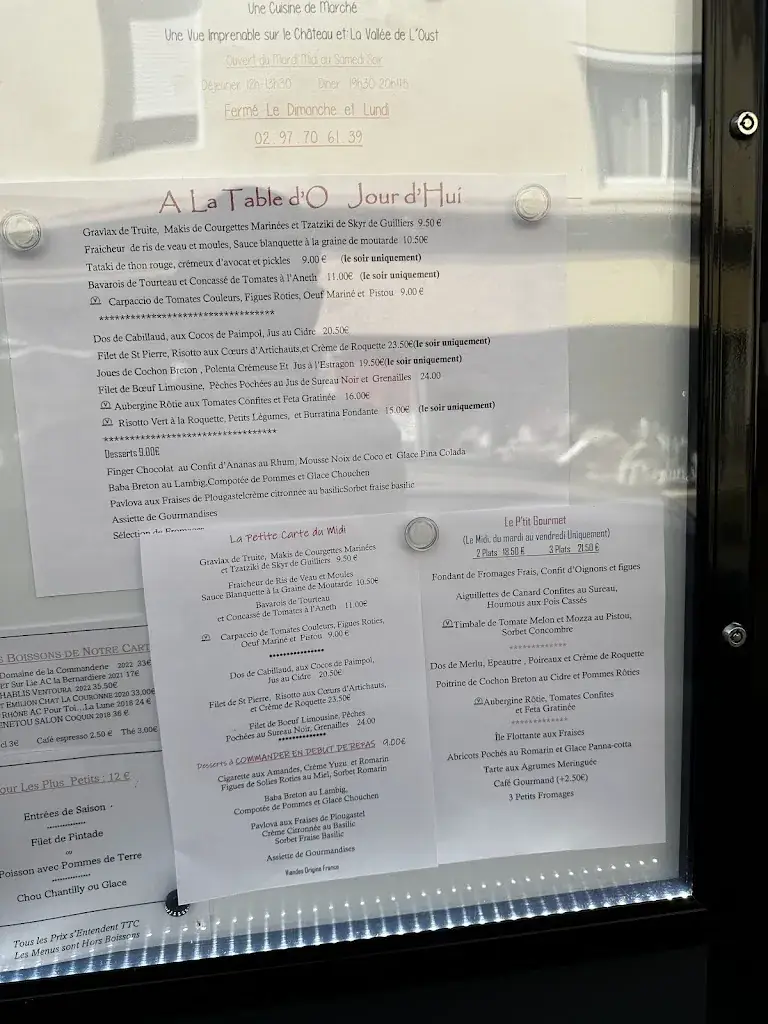 Une Cuisine de Marché
Une Vue Imprenable sur le Château et La Vallée de L'Oust
Ouvert du Mardi Midi au Samedi Soir
Déjeuner 12h-13h30 Diner 19h30-20h45
Fermé Le Dimanche et Lundi
02.97.70 61.39
A La Table d'O Jour d'Hui
Gravlax de Truite, Makis de Courgettes Marinées et Tzatziki de Skyr de Guilliers 9.50 €
Fraicheur de ris de veau et moules, Sauce blanquette à la graine de moutarde 10.50€
Tataki de thon rouge, crémeux d'avocat et pickles 9.00 € (le soir uniquement)
Bavarois de Tourteau et Concassé de Tomates à l'Aneth 11.00€ (le soir uniquement)
Carpaccio de Tomates Couleurs, Figues Roties, Oeuf Mariné et Pistou 9.00 €
**********************************
Dos de Cabillaud, aux Cocos de Paimpol, Jus au Cidre 20.50€
Filet de St Pierre, Risotto aux Cœurs d'Artichauts,et Crème de Roquette 23.50€(le soir uniquement)
Joues de Cochon Breton , Polenta Crémeuse Et Jus à l'Estragon 19.50€(le soir uniquement)
Filet de Bœuf Limousine, Pêches Pochées au Jus de Sureau Noir et Grenailles 24.00
Aubergine Rôtie aux Tomates Confites et Feta Gratinée 16.00€
Risotto Vert à la Roquette, Petits Légumes, et Burratina Fondante 15.00€ (le soir uniquement)
**********************************
Desserts 9.00€
Finger Chocolat au Confit d'Ananas au Rhum, Mousse Noix de Coco et Glace Pina Colada
Baba Breton au Lambig,Compotée de Pommes et Glace Chouchen
Pavlova aux Fraises de Plougastelcrème citronnée au basilicSorbet fraise basilic
Assiette de Gourmandises
Sélection de Fromages
La Petite Carte du Midi
Gravlax de Truite, Makis de Courgettes Marinées
et Tzatziki de Skyr de Guilliers 9.50 €
Fraicheur de Ris de Veau et Moules
Sauce Blanquette à la Graine de Moutarde 10.50€
Bavarois de Tourteau
et Concassé de Tomates à l'Aneth 11.00€
Carpaccio de Tomates Couleurs, Figues Roties,
Oeuf Mariné et Pistou 9.00 €
****************
Dos de Cabillaud, aux Cocos de Paimpol,
Jus au Cidre 20.50€
Filet de St Pierre, Risotto aux Cœurs d'Artichauts,
et Crème de Roquette 23.50€
Filet de Boeuf Limousine, Pêches
Pochées au Sureau Noir, Grenailles 24.00
**************
Desserts à COMMANDER EN DEBUT DE REPAS 9.00€
Cigarette aux Amandes, Crème Yuzu et Romarin
Figues de Solies Roties au Miel, Sorbet Romarin
Baba Breton au Lambig,
Compotée de Pommes et Glace Chouchen
Pavlova aux Fraises de Plougastel
Crème Citronnée au Basilic
Sorbet Fraise Basilic
Assiette de Gourmandises
Viandes Origine France
Le P'tit Gourmet
(Le Midi, du mardi au vendredi Uniquement)
2 Plats 18.50 € 3 Plats 21.50 €
Fondant de Fromages Frais, Confit d'Oignons et figues
Aiguillettes de Canard Confites au Sureau,
Houmous aux Pois Cassés
Timbale de Tomate Melon et Mozza au Pistou,
Sorbet Concombre
**************
Dos de Merlu, Epeautre , Poireaux et Crème de Roquette
Poitrine de Cochon Breton au Cidre et Pommes Rôties
Aubergine Rôtie, Tomates Confites
et Feta Gratinée
**************
Île Flottante aux Fraises
Abricots Pochés au Romarin et Glace Panna-cotta
Tarte aux Agrumes Meringuée
Café Gourmand (+2.50€)
3 Petits Fromages
Boissons de Notre Cart
Domaine de la Commanderie 2022 33€
et Sur Lie AC la Bernardiere 2021 17€
hablis Ventoura 2022 35.50€
Emilion Chat La Couronne 2020 33,00€
Rhône AC Pour Toi...La Lune 2018 24 €
enetou Salon Coquin 2018 36 €
cl 3€ Café espresso 2.50 € Thé 3,00€
our Les Plus Petits : 12 €
Entrées de Saison
**************
Filet de Pintade
ou
Poisson avec Pommes de Terre
**************
Chou Chantilly ou Glace
Tous les Prix s'Entendent TTC
Les Menus sont Hors Boissons